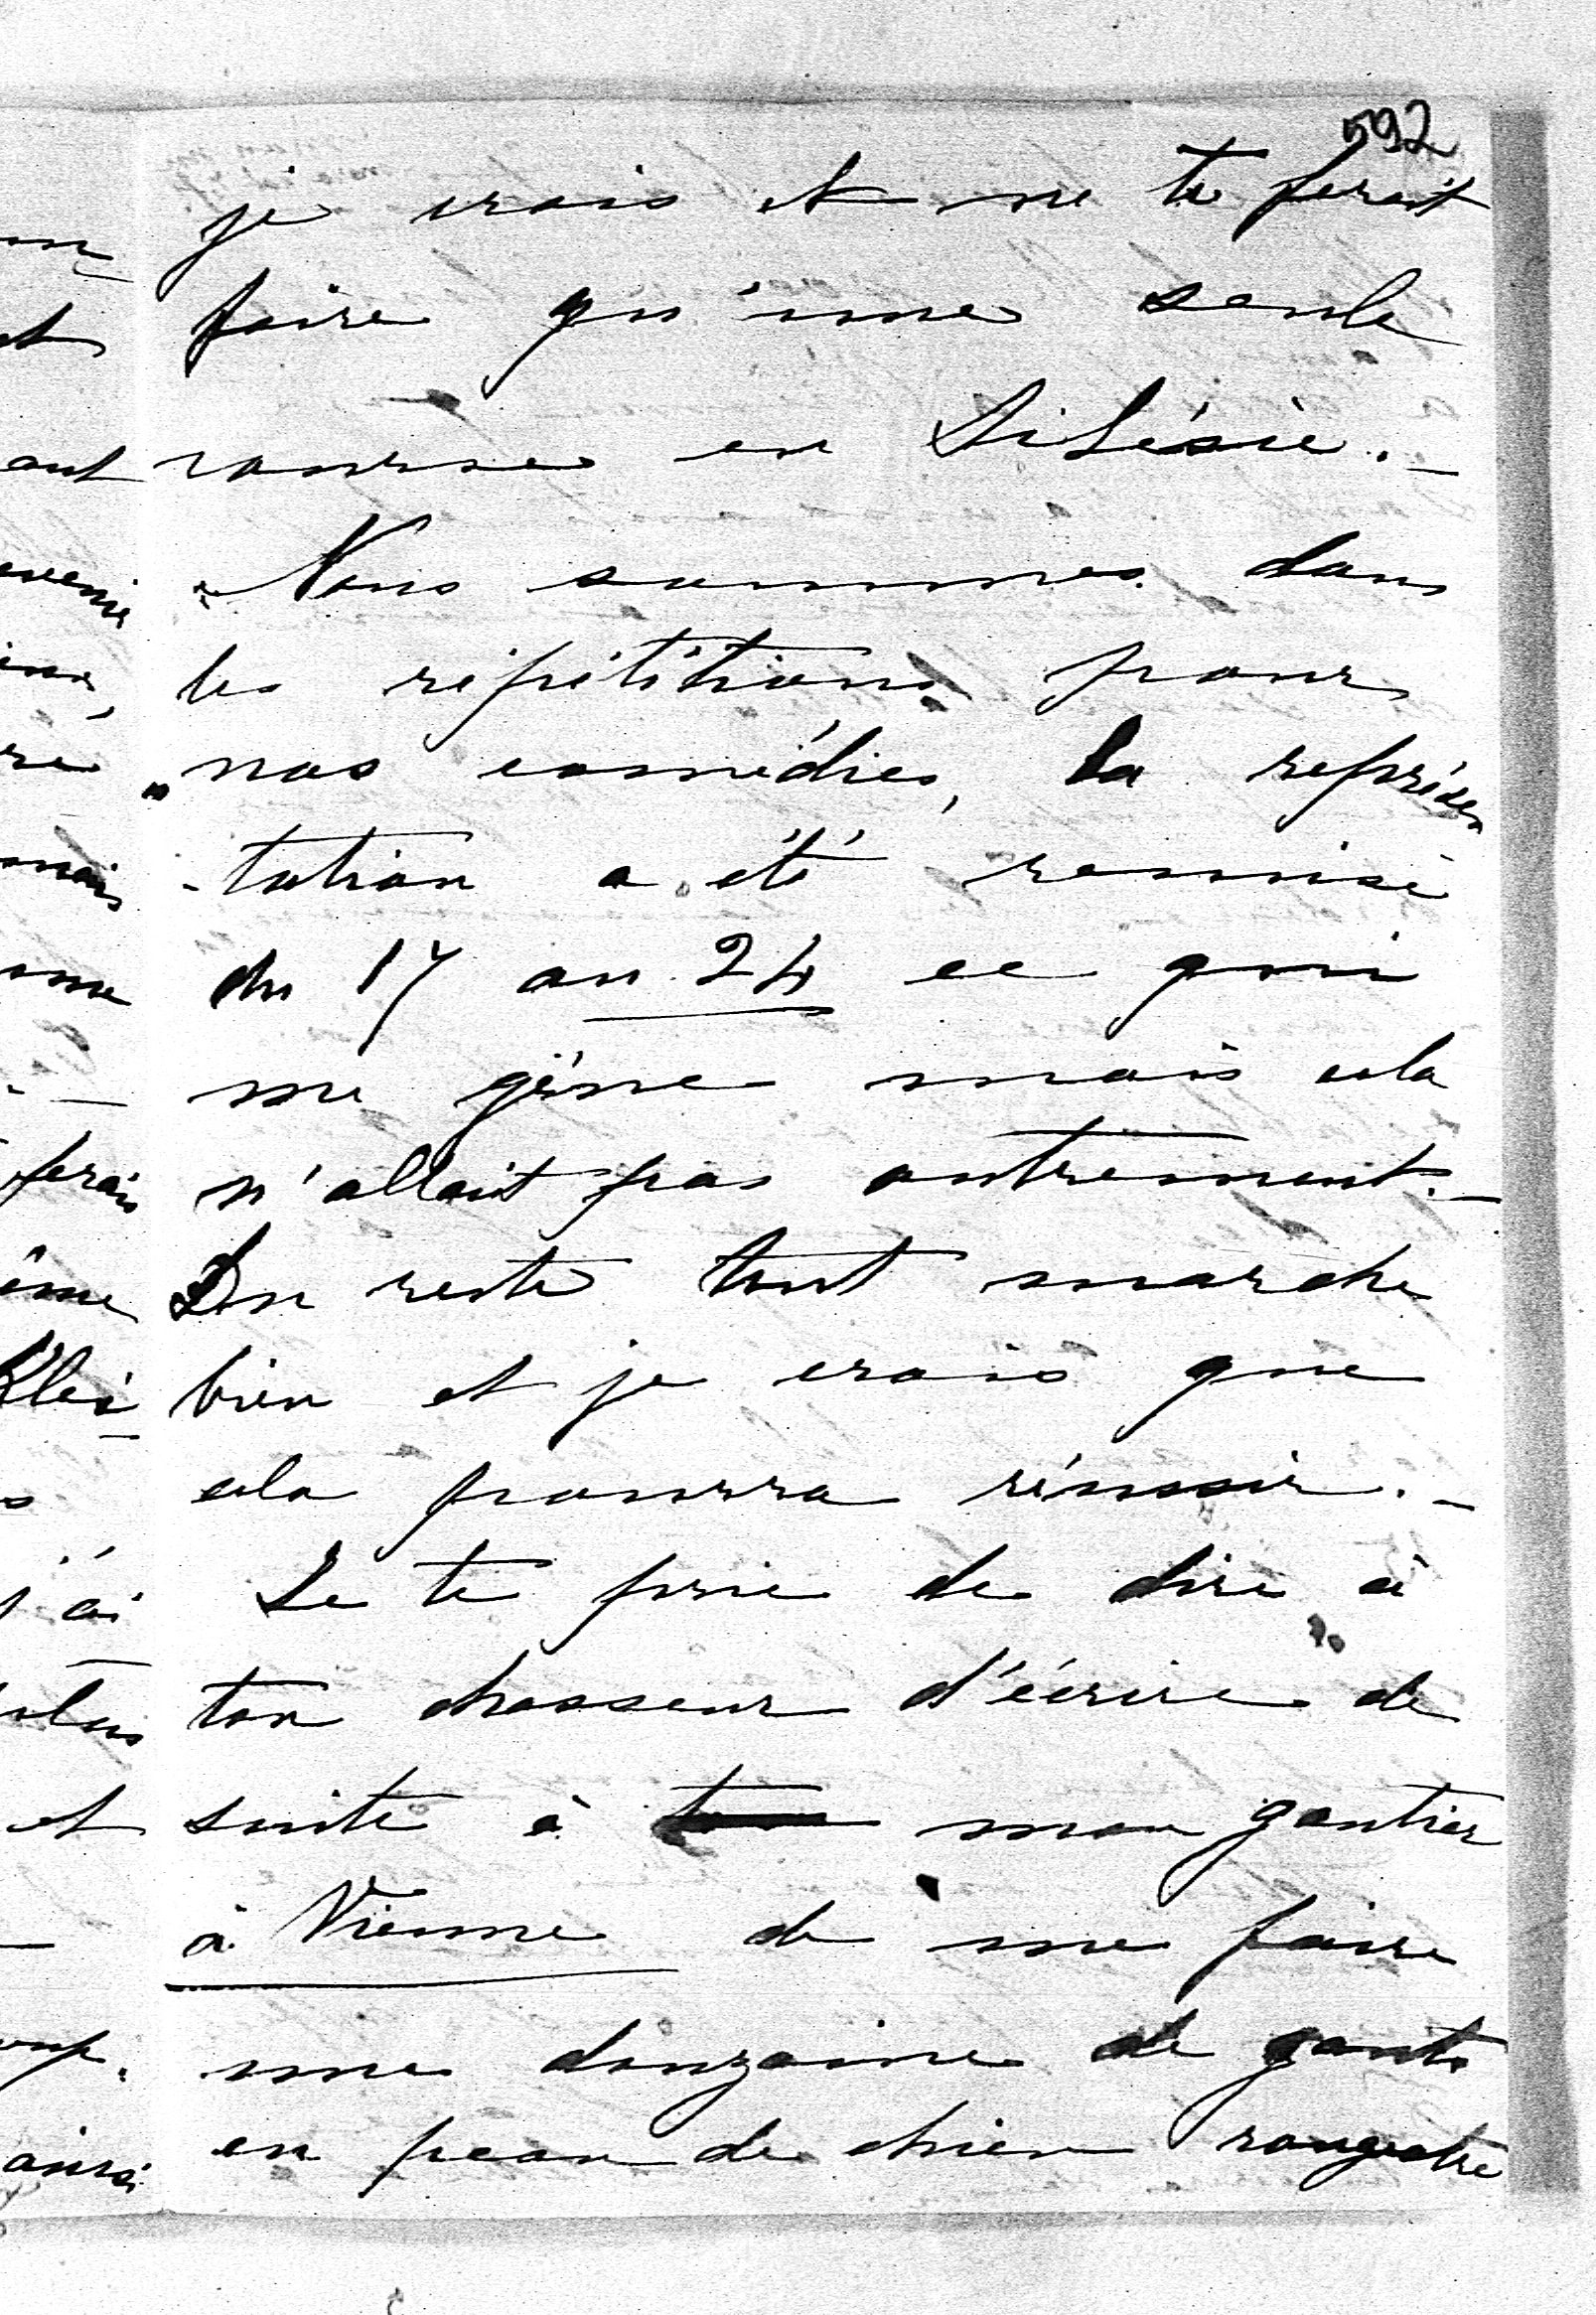 592
je crois et ne te ferait
faire qu'une seule
course en Silésie. _
Nous sommes dans
les répétitions pour
nos comédies, la représen
-tation a été remise
du 17 au 24 ce qui
me gêne mais cela
n'allait pas autrement. _
Du reste tout marche
bien et je crois que
cela pourra réussir. _
Je te prie de dire à
ton chasseur d'écrire de
suite à mon gantier
à Vienne de me faire
une douzaine de gants
en peau de chien rougeatre